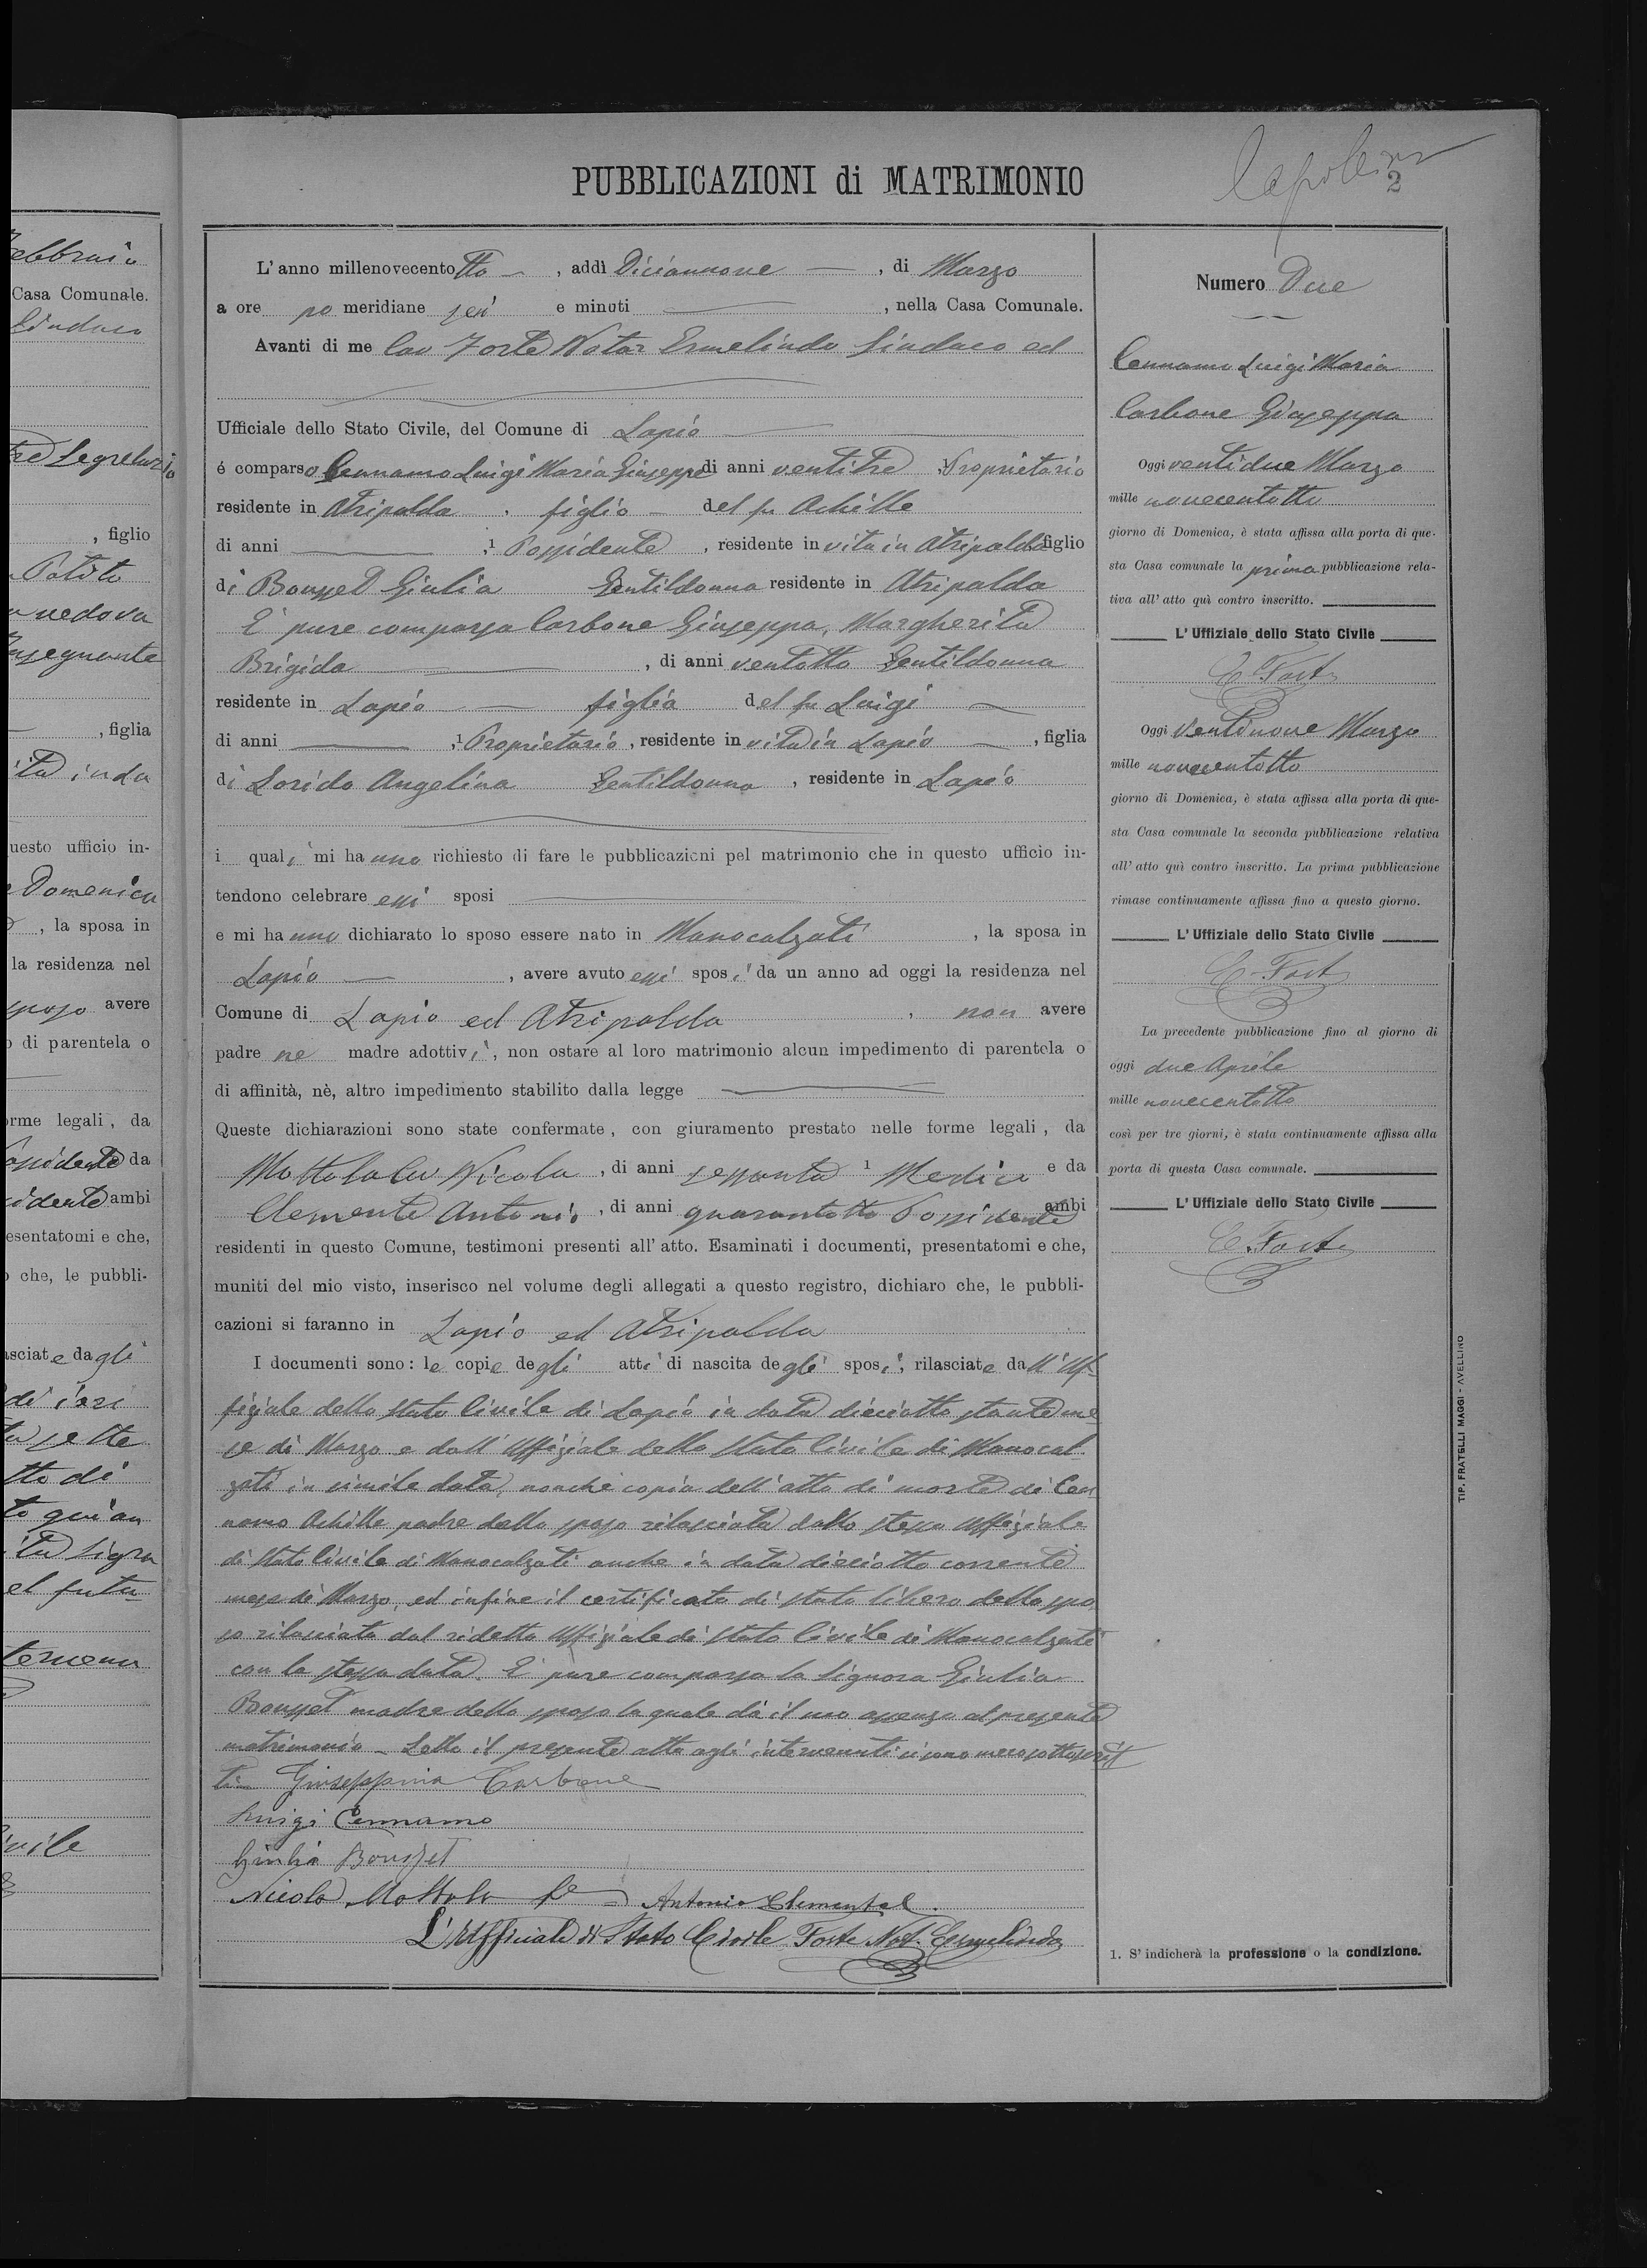 ebbraio
Casa Comunale.
Sindaco
Segretario
, figlio
Potito
vedova
Insegnante
, figlia
uesto ufficio in-
Domenica
, la sposa in
la residenza nel
sposo avere
di parentela o
orme legali, da
ossidente da
idente ambi
esentatomi e che,
che, le pubbli-
asciate dagli
di ieri
sette
tto di
el futu
ivile
PUBBLICAZIONI di MATRIMONIO
2
L'anno millenovecento tto, addì Diciannove, di Marzo
a ore po meridiane sei e minuti, nella Casa Comunale.
Avanti di me Cav Forte Notar Ermelindo Sindaco ed
Ufficiale dello Stato Civile, del Comune di Lapio
é comparso Cennamo Luigi Maria Giuseppe di anni ventitre Proprietario
residente in Atripalda, figlio del fu Achille
di anni ,1 Possidente, residente in vita in Atripalda figlio
di Bousset Giulia Gentildonna residente in Atripalda
E' pure comparsa Carbone Giuseppa, Margherita
Brigida, di anni ventotto Gentildonna
residente in Lapio figlia del fu Luigi
di anni ,1 Proprietario, residente in vita in Lapio, figlia
di Lorido Angelina Gentildonna, residente in Lapio
i quali mi hanno richiesto di fare le pubblicazioni pel matrimonio che in questo ufficio in-
tendono celebrare essi sposi
e mi hanno dichiarato lo sposo essere nato in Manocalzati, la sposa in
Lapio, avere avuto essi sposi da un anno ad oggi la residenza nel
Comune di Lapio ed Atripalda, non avere
padre ne madre adottivi, non ostare al loro matrimonio alcun impedimento di parentela o
di affinità, nè, altro impedimento stabilito dalla legge
Queste dichiarazioni sono state confermate, con giuramento prestato nelle forme legali, da
Mottola Nicola, di anni sessanta 1 Medico e da
Clemente Antonio, di anni quarantotto Possidente ambi
residenti in questo Comune, testimoni presenti all'atto. Esaminati i documenti, presentatomi e che,
muniti del mio visto, inserisco nel volume degli allegati a questo registro, dichiaro che, le pubbli-
cazioni si faranno in Lapio ed Atripalda
I documenti sono: le copie degli atti di nascita degli sposi, rilasciate dall'Uf-
fiziale dello stato Civile di Lapio in data dieciotto stante me
se di Marzo e dall'Uffiziale dello stato Civile di Manocal
zati in simile data, nonche copia dell'atto di morte di Cen
namo Achille padre dello sposo rilasciata dallo stesso Uffiziale
di stato Civile di Manocalzati anche in data dieciotto corrente
mese di Marzo, ed infine il certificato di stato libero dello spo
so rilasciato dal ridetto Uffiziale di stato Civile di Manocalzati
con la stessa data. E' pure comparsa la Signora Giulia
Bousset madre dello sposo la quale dà il suo assenso al presente
matrimonio - Letto il presente atto agli intervenuti si sono meco sottoscrit
ti - Giuseppina Carbone
Luigi Cennamo
Giulia Bousset
Nicola Mottola fu
Antonio Clemente
L'Ufficiale di Stato Civile Forte Not. Ermelindo
Numero Due
Cennamo Luigi Maria
Carbone Giuseppa
Oggi ventidue Marzo
mille novecentotto
giorno di Domenica, è stata affissa alla porta di que-
sta Casa comunale la prima pubblicazione rela-
tiva all'atto quì contro inscritto.
L'Uffiziale dello Stato Civile
E. Forte
Oggi Ventinove Marzo
mille novecentotto
giorno di Domenica, è stata affissa alla porta di que-
sta Casa comunale la seconda pubblicazione relativa
all'atto quì contro inscritto. La prima pubblicazione
rimase continuamente affissa fino a questo giorno.
L'Uffiziale dello Stato Civile
E. Forte
La precedente pubblicazione fino al giorno di
oggi due Aprile
mille novecentotto
così per tre giorni, è stata continuamente affissa alla
porta di questa Casa comunale.
L'Uffiziale dello Stato Civile
E. Forte
1. S'indicherà la professione o la condizione.
TIP. FRATELLI MAGGI - AVELLINO